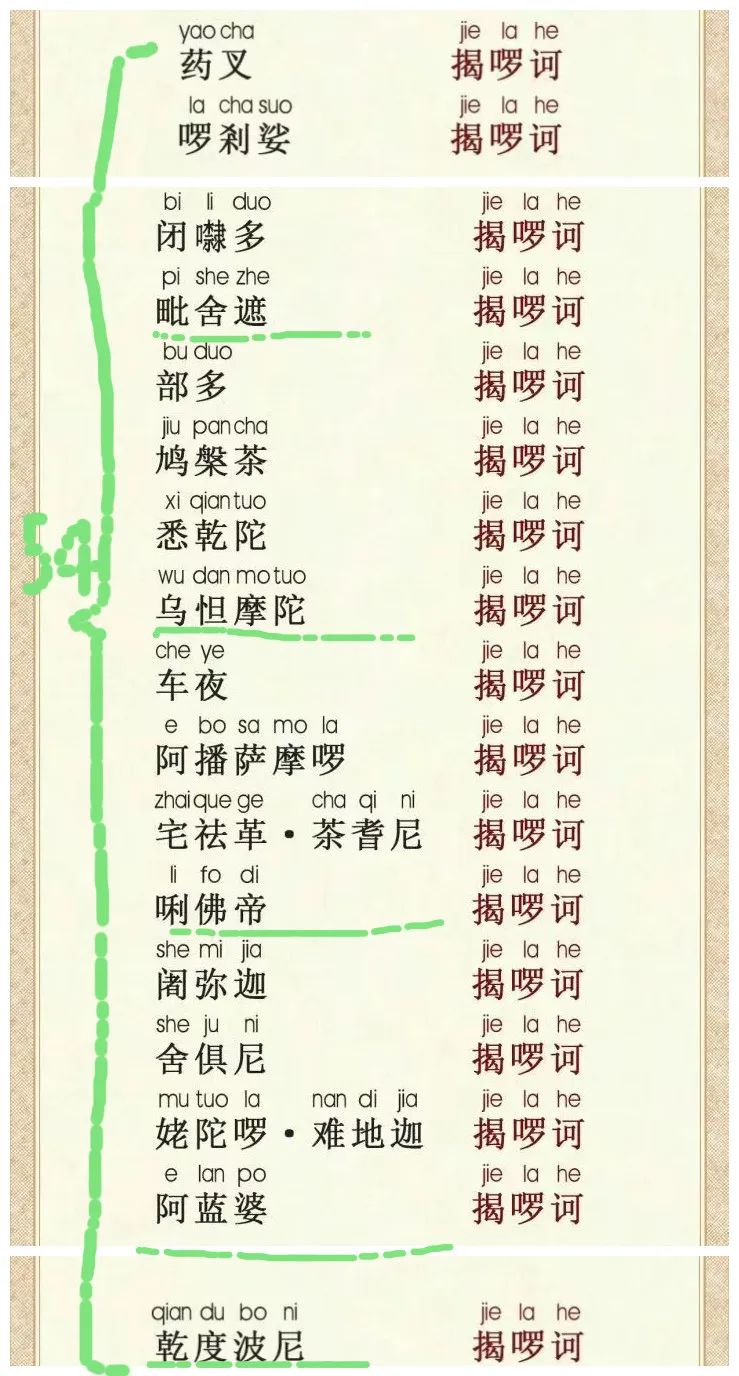 yao cha jie la he
药叉 揭啰诃
la cha suo jie la he
啰刹娑 揭啰诃
bi li duo jie la he
闭㘑多 揭啰诃
pi she zhe jie la he
毗舍遮 揭啰诃
bu duo jie la he
部多 揭啰诃
jiu pan cha jie la he
鸠槃茶 揭啰诃
xi qian tuo jie la he
悉乾陀 揭啰诃
wu dan mo tuo jie la he
乌怛摩陀 揭啰诃
che ye jie la he
车夜 揭啰诃
e bo sa mo la jie la he
阿播萨摩啰 揭啰诃
zhai que ge cha qi ni jie la he
宅祛革·茶耆尼 揭啰诃
li fo di jie la he
唎佛帝 揭啰诃
she mi jia jie la he
阇弥迦 揭啰诃
she ju ni jie la he
舍俱尼 揭啰诃
mu tuo la nan di jia jie la he
姥陀啰·难地迦 揭啰诃
e lan po jie la he
阿蓝婆 揭啰诃
qian du bo ni jie la he
乾度波尼 揭啰诃
54